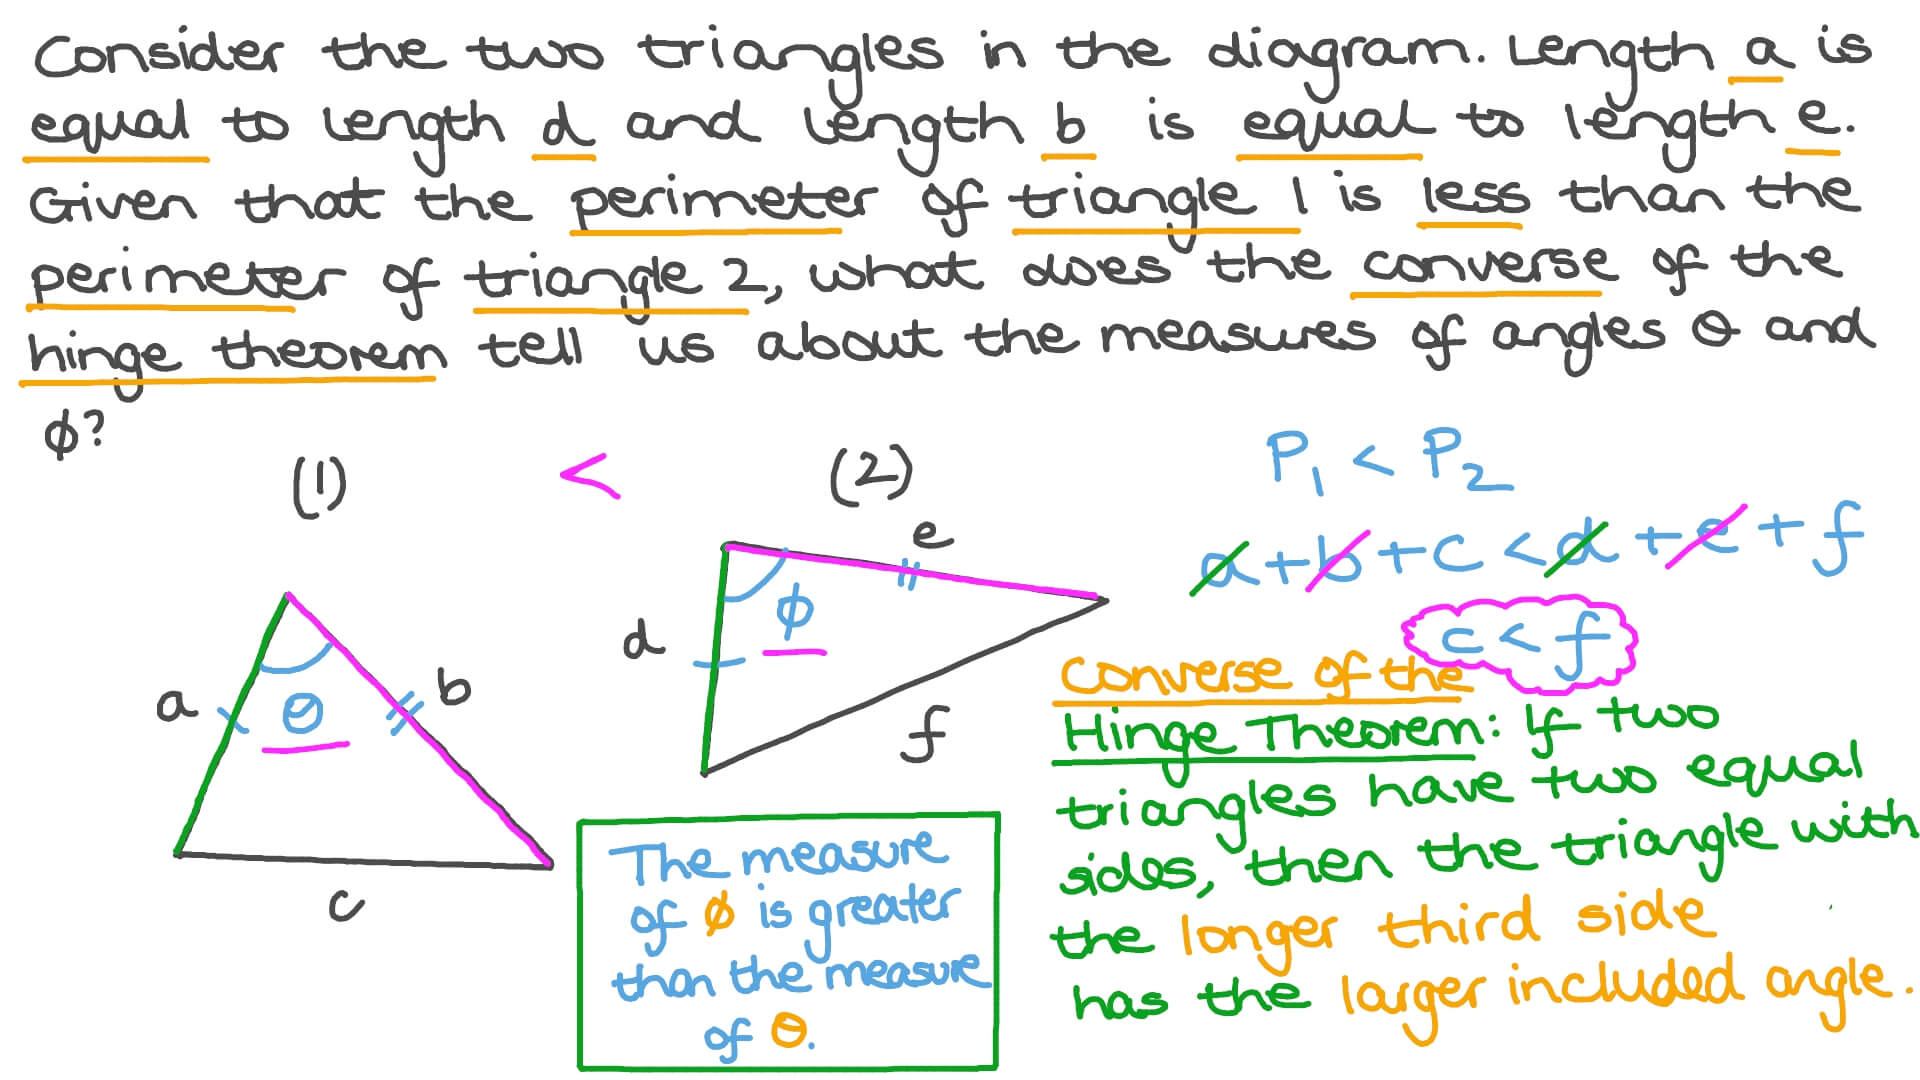 Consider the two triangles in the diagram. Length a is
equal to length d and length b is equal to length e.
Given that the perimeter of triangle 1 is less than the
perimeter of triangle 2, what does the converse of the
hinge theorem tell us about the measures of angles θ and
ϕ?
(1) < (2)
P₁ < P₂
a + b + c < d + e + f
c < f
e
ϕ
d
f
a
θ
b
c
Converse of the
Hinge Theorem: If two
triangles have two equal
sides, then the triangle with
the longer third side
has the larger included angle.
The measure
of ϕ is greater
than the measure
of θ.